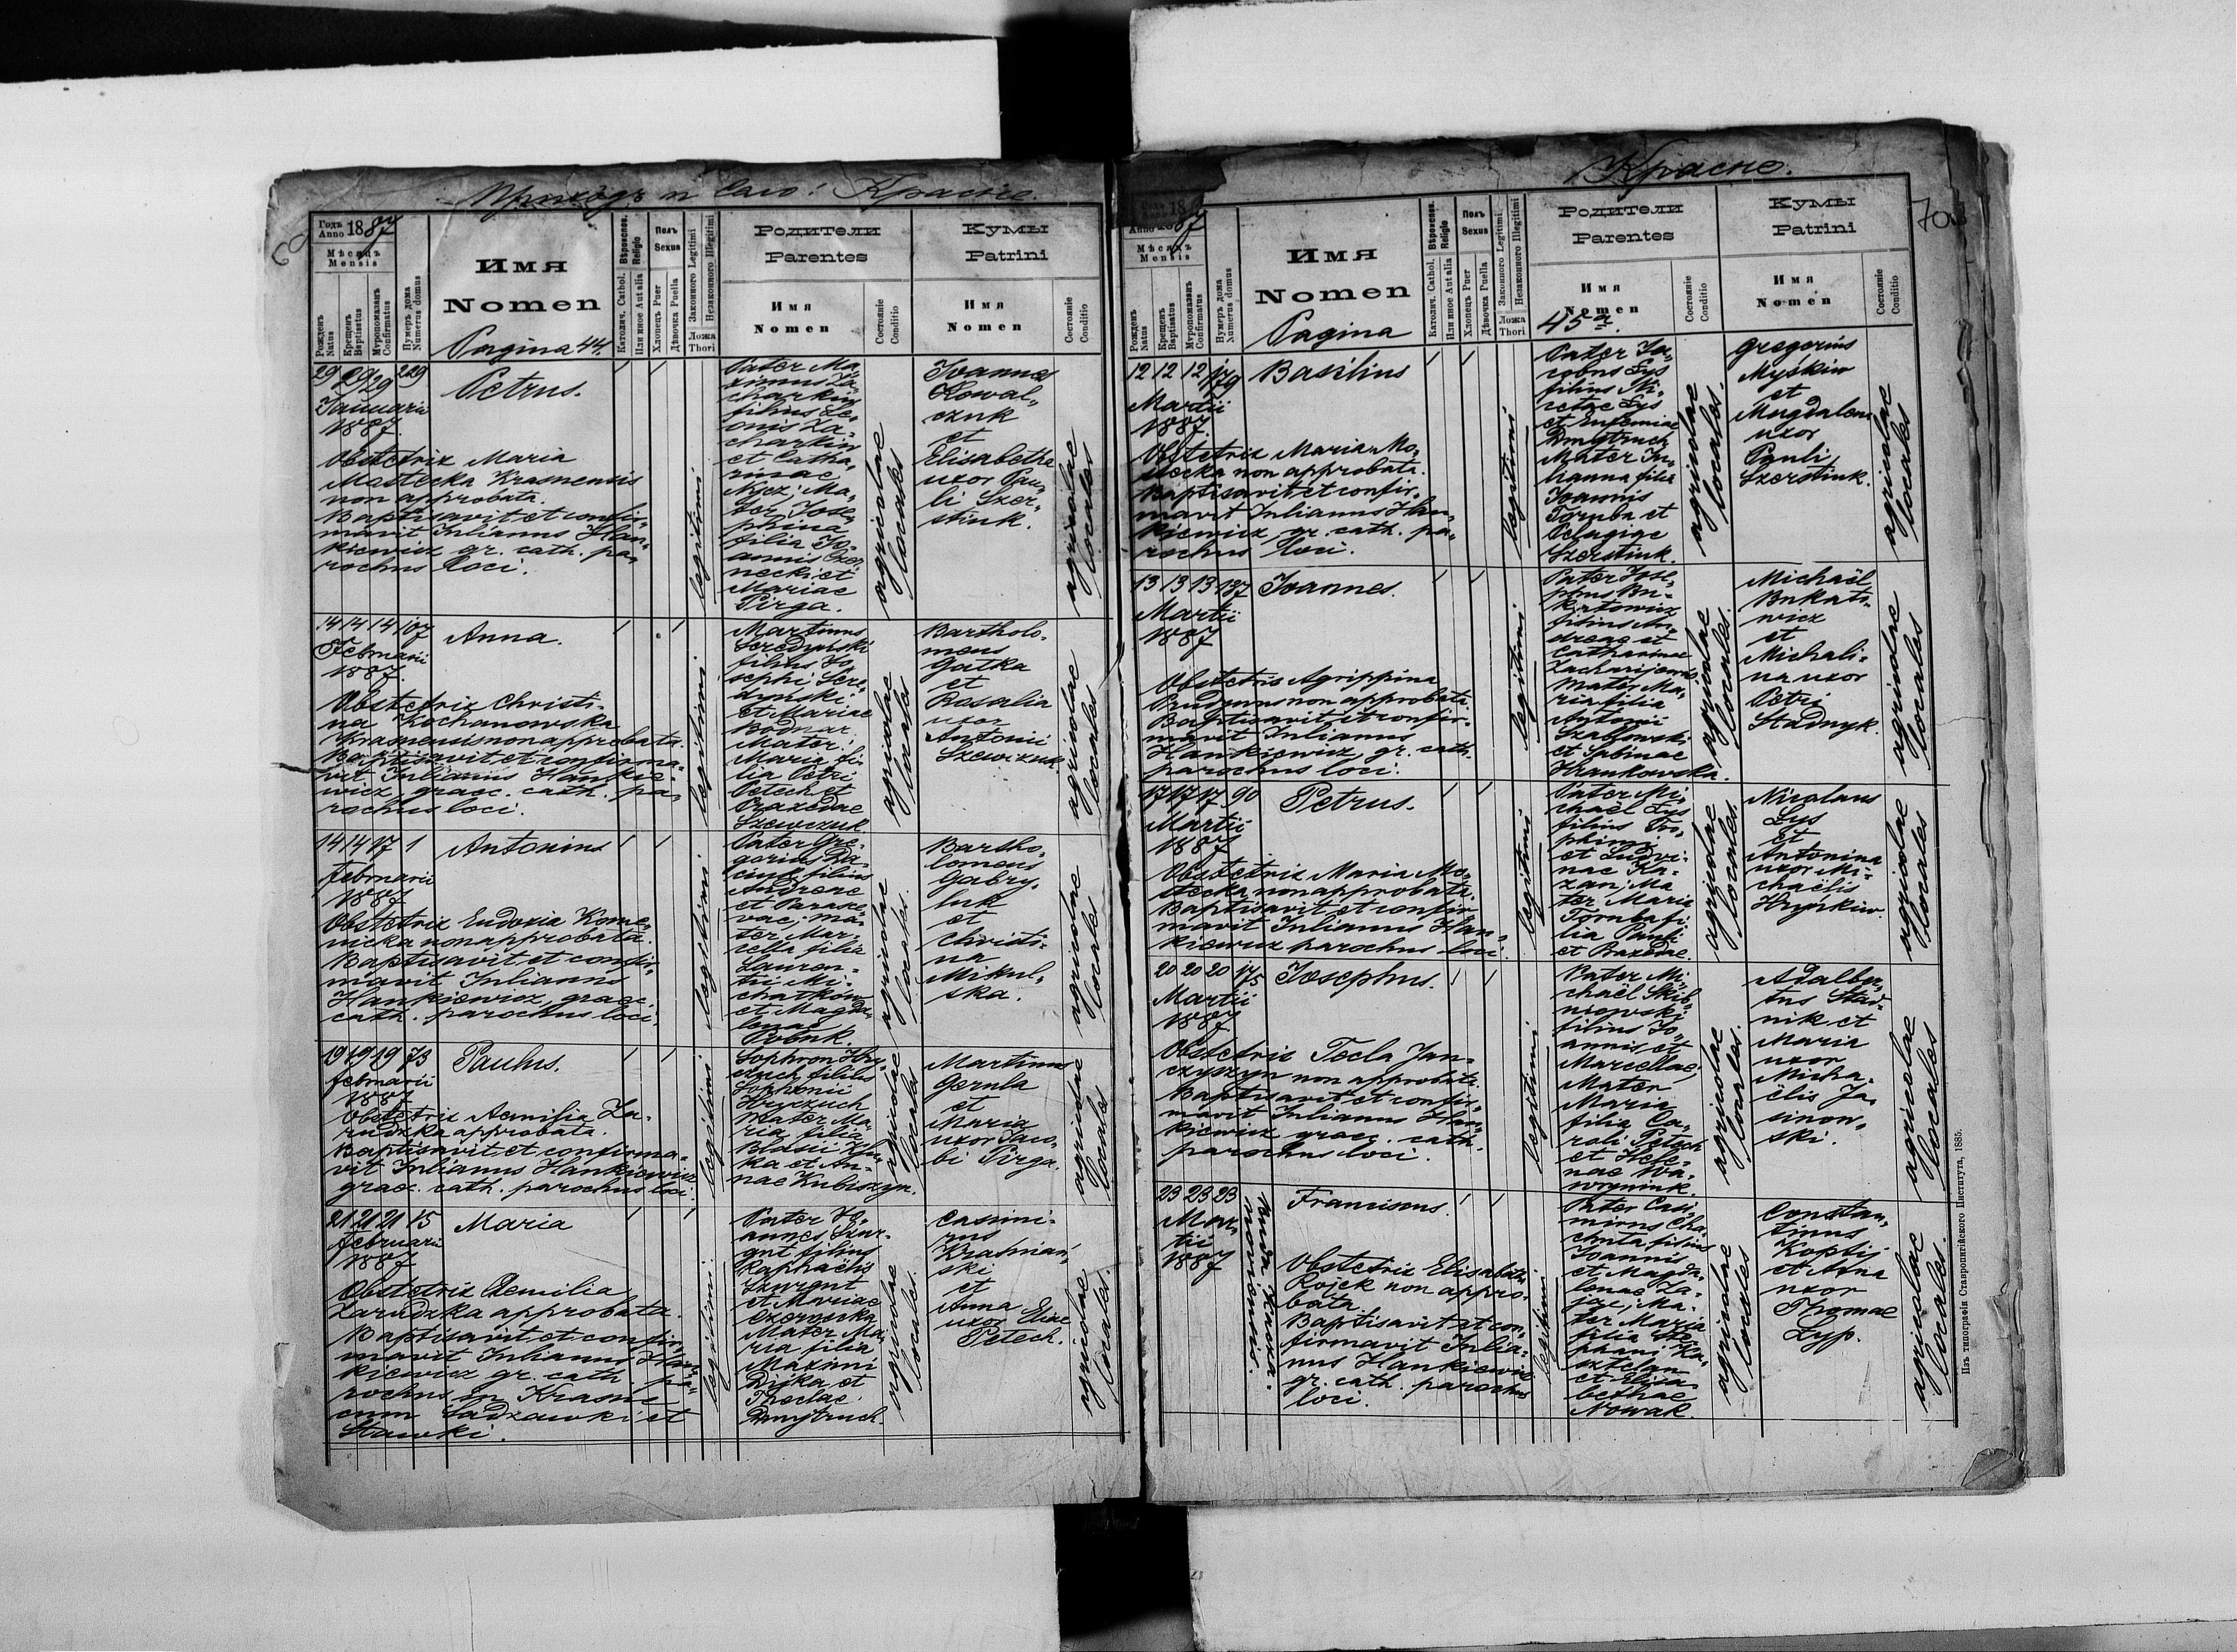 Приходъ и Село: Красне.
Годъ Anno 1887
Мѣсяцъ
Mensis
Рожденъ Natus
Крещенъ Baptisatus
Муропомазанъ Confirmatus
Нумеръ дома Numerus domus
Имя
Nomen
Pagina 44.
Вѣроисповѣд. Religio
Католич. Cathol.
Или иное Aut alia
Полъ
Sexus
Хлопецъ Puer
Дѣвочка Puella
Законного Legitimi
Незаконного Illegitimi
Ложа
Thori
Родители
Parentes
Имя
Nomen
Состояніе
Conditio
Кумы
Patrini
Имя
Nomen
Состояніе
Conditio
29 29 29 229
Januarii
1887.
Petrus.
Obstetrix Maria
Mostecka Krasnensis
non approbata.
Baptisavit et confir-
mavit Julianus Han-
kiewicz gr. cath. pa-
rochus loci.
legitimi
Pater Ma-
ximus Za-
charkiw
filius Le-
onis Za-
charkiw
et Catha-
rinae
Mater Jose-
phina
filia Jo-
annis
et
Mariae
Pirga.
agricolae
locales
Joannes
Kowal-
czuk
et
Elisabetha
uxor Pau-
li Szer-
stiuk.
agricolae
locales
14 14 14 107
Februarii
1887.
Anna.
Obstetrix Christi-
na Kochanowska
Krasnensis non approbata.
Baptisavit et confirma-
vit Julianus Hankie-
wicz, graec. cath. pa-
rochus loci.
legitimi
Martinus
Seredynski
filius Jo-
sephi Sere-
dynski
et Mariae
Bodnar
Mater:
Maria fi-
lia Petri
Petech et
Praxedae
Szewczuk
agricolae
locales
Bartholo-
meus
Gatka
et
Rosalia
uxor
Antonii
Szewczuk
agricolae
locales
14 14 17 1
februarii
1887
Antonius
Obstetrix Eudoxia Kome-
nicka non approbata.
Baptisavit et confir-
mavit Julianus
Hankiewicz, graec.
cath. parochus loci.
legitimi
Pater Gre-
gorius Da-
ciuk filius
Andreae
et Paraske-
vae; ma-
ter Mar-
cella filia
Lauren-
tii Mi-
chatków
et Magda-
lenae
agricolae
locales
Bartho-
lomeus
Gabry-
luk
et
Christi-
na
Mikul-
ska.
agricolae
locales
19 19 19 73
februarii
1887
Paulus.
Obstetrix Aemilia Za-
rudzka approbata.
Baptisavit et confirma-
vit Julianus Hankiewicz
graec. cath. parochus loci.
legitimi
Sophron Hry-
czuch filius
Sophronii
Hryczuch
Mater Ma-
ria filia
Blasii
et An-
nae Kubiszyn.
agricolae
locales
Martinus
Gerula
et
Maria
uxor Jaco-
bi Pirga.
agricolae
locales
21 21 21 15
februarii
1887
Maria
Obstetrix Aemilia
Zarudzka approbata.
Baptisavit et confir-
mavit Julianus Han-
kiewicz gr. cath. pa-
rochus in Krasne
cum Sadzawki et
Stawki.
legitimi
Pater Jo-
annes Szar-
gut filius
Raphaelis
Szargut
et Mariae
Mater Ma-
ria filia
Maximi
Dijka et
Theclae
Dmytruch.
agricolae
locales.
Casimi-
rus
Kratnian-
ski
et
Anna
uxor Eliae
Petech.
agricolae
locales.
Красне.
70
Anno 1887
Мѣсяцъ
Mensis
Рожденъ Natus
Крещенъ Baptisatus
Муропомазанъ Confirmatus
Нумеръ дома Numerus domus
Имя
Nomen
Pagina
Вѣроисповѣд. Religio
Католич. Cathol.
Или иное Aut alia
Полъ
Sexus
Хлопецъ Puer
Дѣвочка Puella
Законного Legitimi
Незаконного Illegitimi
Ложа
Thori
Родители
Parentes
Имя
Nomen
45a.
Состояніе
Conditio
Кумы
Patrini
Имя
Nomen
Состояніе
Conditio
12 12 12 179
Martii
1887.
Basilius
Obstetrix Maria Mo-
stecka non approbata.
Baptisavit et confir-
mavit Julianus Han-
kiewicz, gr. cath. pa-
rochus loci.
legitimi
Pater Ja-
cobus Lys
filius Ni-
cetae Lys
et Eufemiae
Dmytruch
Mater Ju-
lianna filia
Joannis
Toruba et
Pelagiae
Szerstiuk.
agricolae
locales.
Gregorius
Myskiw
et
Magdalena
uxor
Pauli
Szerstiuk.
agricolae
locales
13 13 13 137
Martii
1887
Joannes.
Obstetrix Agrippina
non approbata.
Baptisavit et confir-
mavit Julianus
Hankiewicz, gr. cath.
parochus loci.
legitimi
Pater Jose-
phus Bu-
katowicz
filius An-
dreae et
Catharinae
Mater Ma-
ria filia
Antonii
Szablowski
et Sabinae
Hrankowska.
agricolae
locales.
Michaël
Bukato-
wicz
et
Michali-
na uxor
Petri
Stadnyk.
agricolae
locales
17 17 17 90
Martii
1887
Petrus.
Obstetrix Maria Mo-
stecka non approbata.
Baptisavit et confir-
mavit Julianus Han-
kiewicz parochus loci.
legitimi
Pater Mi-
chaël Lys
filius Tro-
phimi
et Ludvi-
nae Ka-
zan; Ma-
ter Maria
Toruba fi-
lia Pauli
et Praxedae.
agricolae
locales.
Nicolaus
Lys
et
Antonina
uxor Mi-
chaëlis
Hryńkiw.
agricolae
locales
20 20 20 175
Martii
1887
Josephus.
Obstetrix Tecla Jan-
czyszyn non approbata.
Baptisavit et confir-
mavit Julianus Han-
kiewicz graec. cath.
parochus loci.
legitimi
Pater Mi-
chaël Skib-
niowski
filius Jo-
annis et
Marcellae;
Mater
Maria
filia Ca-
roli Petech
et Hele-
nae Wa-
worynink.
agricolae
locales.
Adalber-
tus Stad-
nik et
Maria
uxor
Micha-
ëlis Ja-
sinow-
ski.
agricolae
locales
23 23 23
Mar-
tii
1887
Franciscus.
Obstetrix Elisabetha
Rojek non appro-
bata.
Baptisavit et con-
firmavit Julia-
nus Hankiewicz
gr. cath. parochus
loci.
legitimi
Pater Casi-
mirus Cha-
chuta filius
Joannis
et Magda-
lenae Za-
jac; Ma-
ter Maria
filia Ste-
phani Ka-
sztelan
et Elisa-
bethae
Nowak.
agricolae
locales
Constan-
tinus
Koptij
et Anna
uxor
Thomae
Lyp.
agricolae
locales.
Изъ типографіи Ставропигійского Института, 1885.